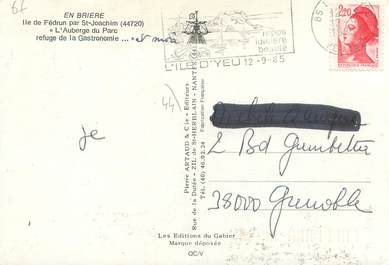 6f
EN BRIERE
Ile de Fédrun par St-Joachim (44720)
« L'Auberge du Parc
refuge de la Gastronomie ... »
je
44
repos
lumière
beauté
L'ILE D'YEU 12-9-85
85
2,20
Pierre ARTAUD & Cie - Editeurs
Rue de la Dutée - ZIL de St-HERBLAIN - NANTES
Tél. (40) 46.02.24 Fabrication Française
2 Bd Gambetta
38000 Grenoble
Les Editions du Gabier
Marque déposée
QC/V